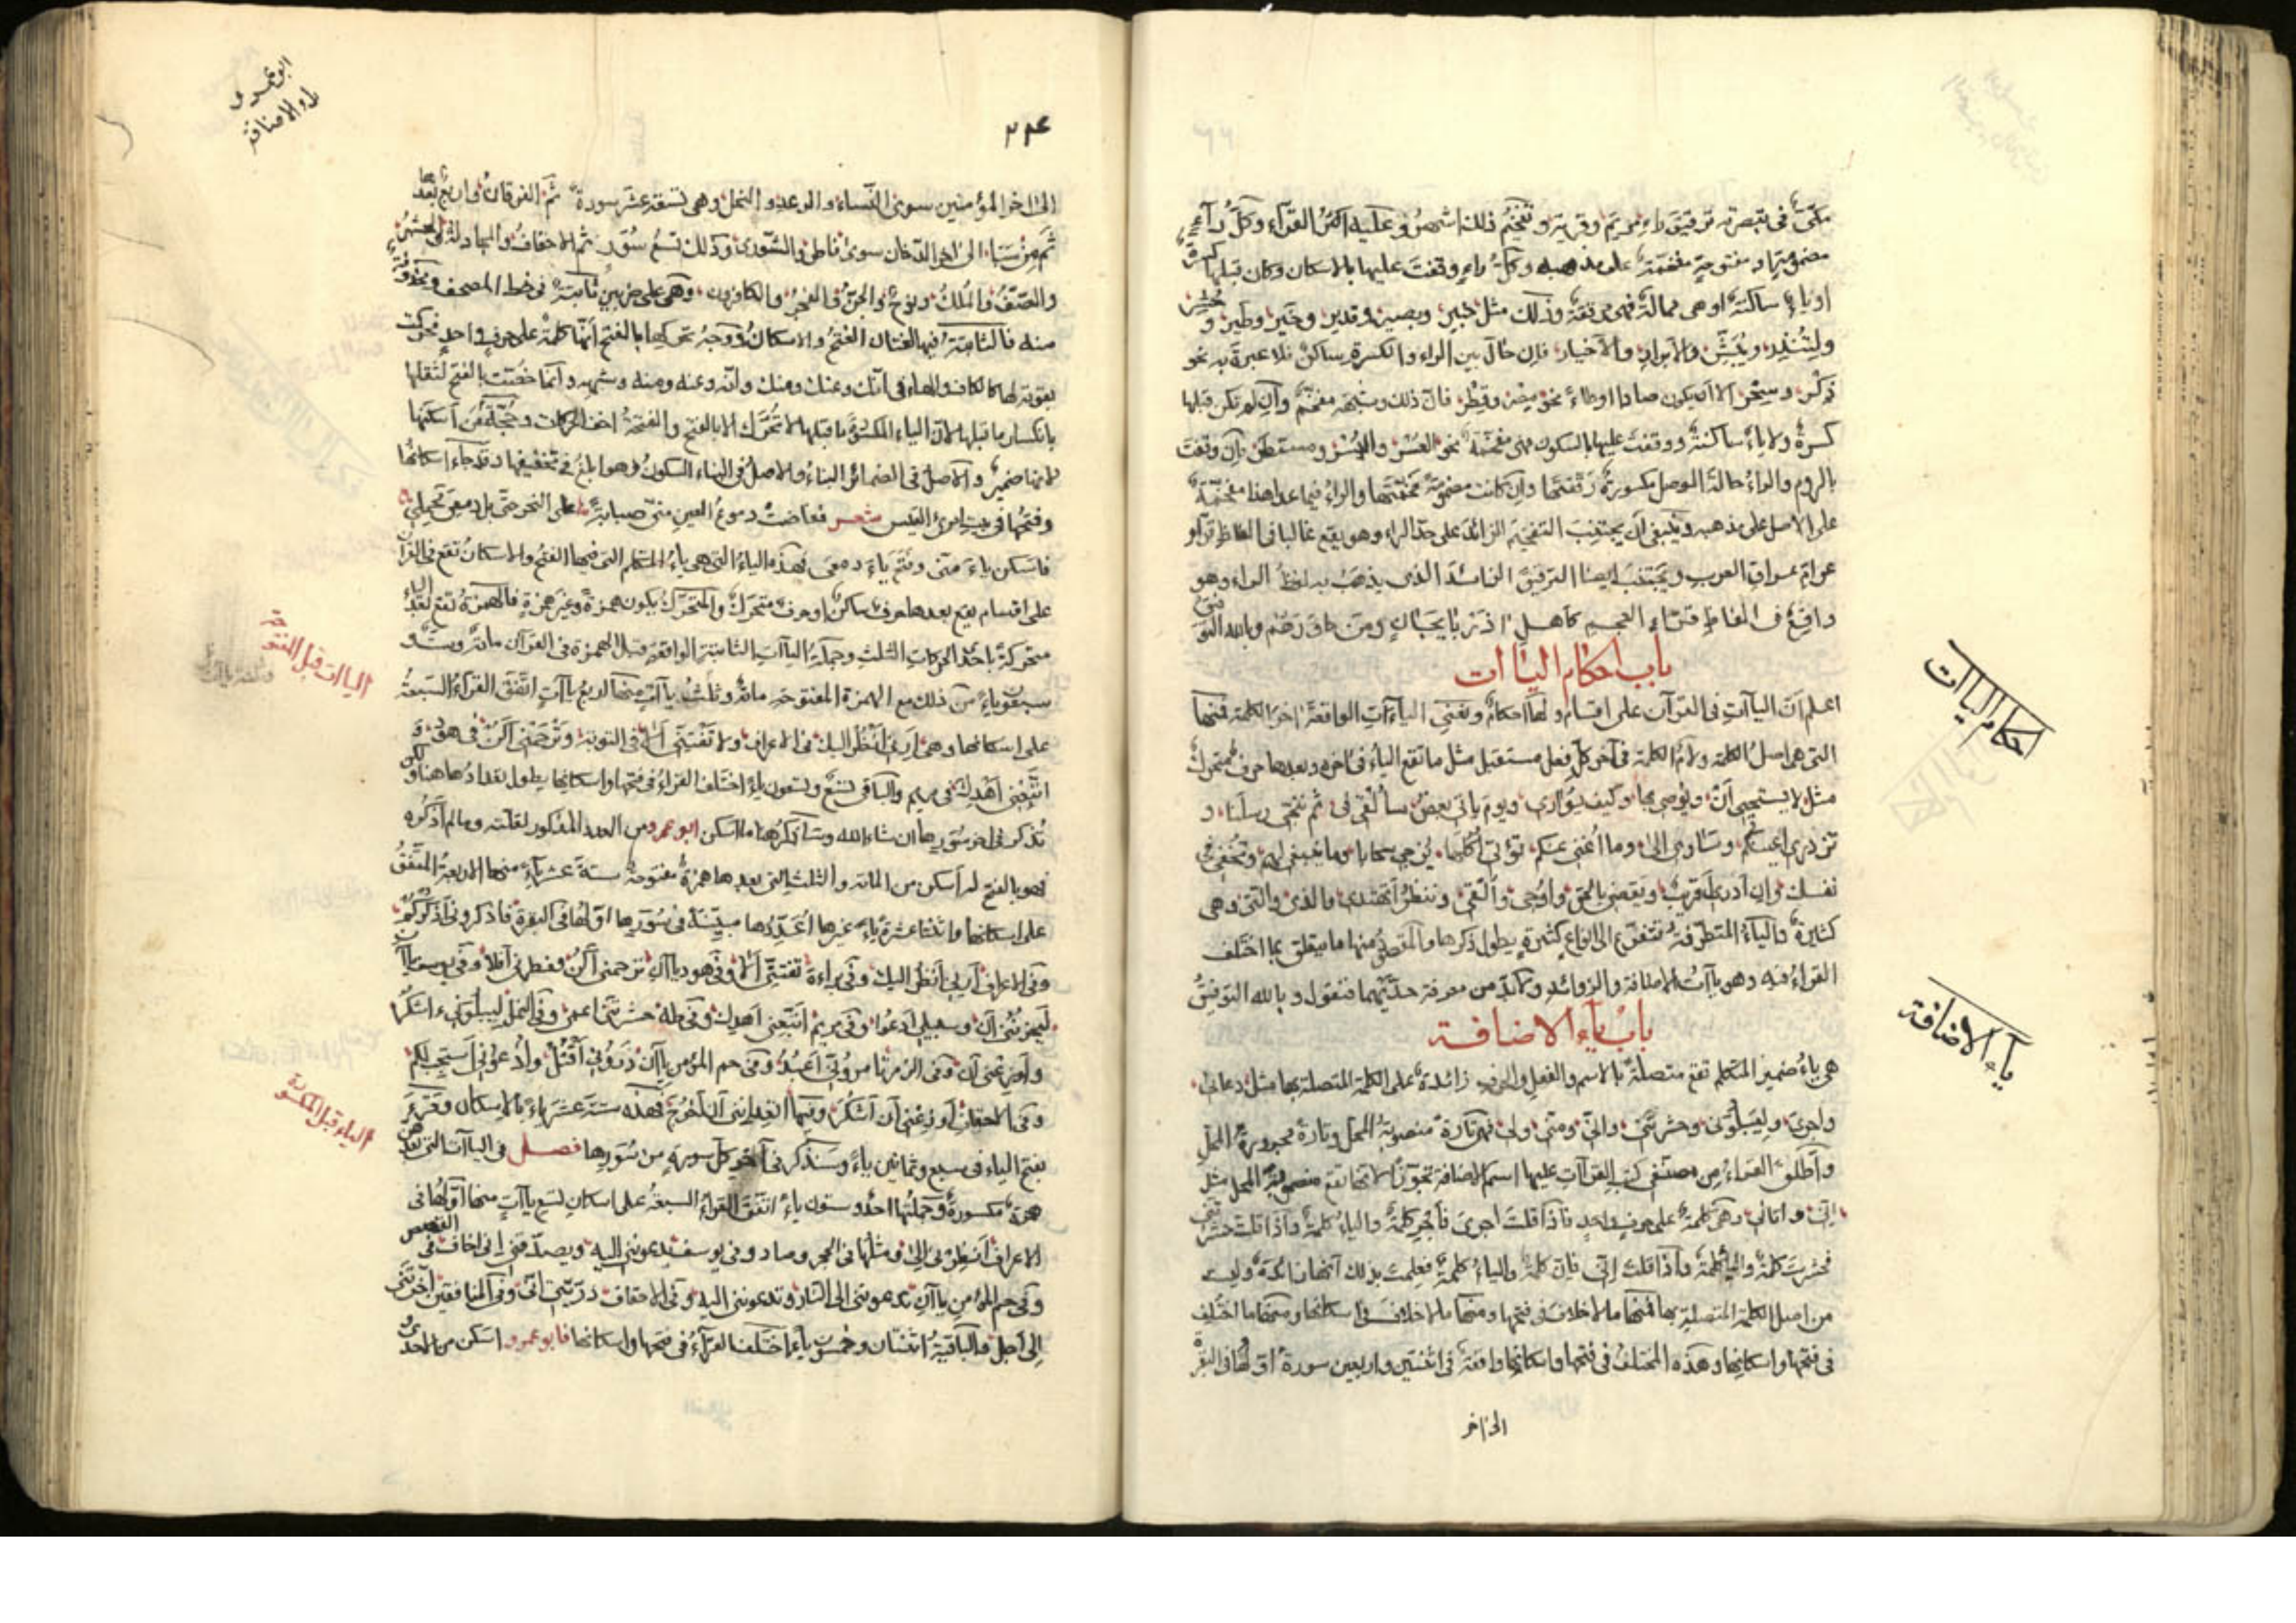 مكي في تبصرته ترقيق راء مريم وقرية وتفخيم ذلك اشهر وعليه اكثر القراء وكل راء
مضمومة او مفتوحة مفخمة على مذهبه وكل راء وقفت عليها بالاسكان وكان قبلها كسرة
او ياء ساكنة او هي ممالة فهي مرققة وذلك مثل خبير وبصير وقدير وخير وطير و
ولتنذر ويبشر والابرار والاخيار فان حال بين الراء والكسرة ساكن فلا عبرة به نحو
ذكر وسحر الا ان يكون صادا او طاء نحو مصر وقطر فان ذلك وشبهه مفخم وان لم تكن قبلها
كسرة ولا ياء ساكنة ووقفت عليها بالسكون فهي مفخمة نحو العسر واليسر ومستطر وان وقفت
بالروم والراء حالة الوصل مكسورة رققتها وان كانت مضمومة فخمتها والراء فيما عدا هذا مفخمة
على الاصل على مذهبه وينبغي ان يجتنب التفخيم الزائد على حد الراء وهو يقع غالبا في الفاظ قراء
عوام عراق العرب ويجتنب ايضا الترقيق الزائد الذي يذهب به لفظ الراء وهو
واقع في الفاظ قراء العجم كاهل اذربايجان ومن وبالله التوفيق
باب احكام الياآت
اعلم ان الياآت في القرآن على اقسام ولها احكام ونعني الياآت الواقعة اخر الكلمة فمنها
التي هي اصل الكلمة ولام الكلمة في آخر كل فعل مستقبل مثل ما تقع الياء في اخره وبعدها حرف متحرك
مثل لا يستحيي ان ويوصي بها وكيف يواري ويوم ياتي بعض سألقي في ثم ننجي رسلنا و
تزدري اعينكم وسآوي الى وما اغني عنكم تؤتي اكلها يزجي سحابا وما ينبغي لهم وتخفي في
نفسك وان ادري اقريب ويقضي بالحق واوحي والقي وننظر اتهتدي والذي والتي وهي
كثيرة والياء المتطرفة تتفرع الى انواع كثيرة يطول ذكرها والمقصود منها ما يتعلق بما اختلف
القراء فيه وهو ياآت الاضافة والزوائد ولا بد من معرفة حديهما فنقول وبالله التوفيق
باب ياء الاضافة
هي ياء ضمير المتكلم تقع متصلة بالاسم والفعل والحرف زائدة على الكلمة المتصلة بها مثل دعائي
واجري وليبلوني وحشرتني واني ومني ولي فهي تارة منصوبة المحل وتارة مجرورة المحل
واطلق القراء من مصنفي كتب القراآت عليها اسم الاضافة تجوزا لانها تقع منصوبة المحل مثل
اني واتاني وهي كلمة على حرف واحد فاذا قلت اجري فاجر كلمة والياء كلمة واذا قلت حشرتني
فحشرت كلمة والياء كلمة واذا قلت اني فان كلمة والياء كلمة فعلمت بذلك انها زائدة وليست
من اصل الكلمة المتصلة بها فمنها ما لا خلاف في فتحها ومنها ما لا خلاف في اسكانها ومنها ما اختلف
في فتحها واسكانها وهذه المختلف في فتحها واسكانها واقعة في اثنتين واربعين سورة اولها البقرة
الى اخر
احكام الياآت
ياء الاضافة
ابو عمرو
ياء الاضافة
الى اخر المؤمنين سوى النساء والرعد والنحل وهي تسعة عشر سورة ثم الفرقان واربع بعدها
ثم من سبا الى اخر الدخان سوى فاطر والشورى وذلك تسع سور ثم الاحقاف والمجادلة والحشر
والصف والملك ونوح والجن والفجر والكافرون وهي على ضربين ثابتة في خط المصحف ومحذوفة
منه فالثابتة فيها لغتان الفتح والاسكان ووجه تحريكها بالفتح انها كلمة على حرف واحد فحركت
تقوية لها كالكاف والهاء في انك وعنك ومنك وانه وعنه ومنه وشبهه وانما خصت بالفتح لثقلها
بانكسار ما قبلها لان الياء المكسور ما قبلها لا تحرك الا بالفتح والفتحة اخف الحركات وحجة من اسكنها
لانها ضمير والاصل في الضمائر البناء والاصل في البناء السكون وهو ابلغ في تخفيفها وقد جاء اسكانها
وفتحها في بيت امرئ القيس شعر ففاضت دموع العين مني صبابة على النحر حتى بل دمعي محملي
فاسكن ياء مني وفتح ياء دمعي فهذه الياء التي هي ياء المتكلم التي فيها الفتح والاسكان تقع في القرآن
على اقسام يقع بعدها حرف ساكن او حرف متحرك والمتحرك يكون همزة وغير همزة فالهمزة تقع بعد الياء
متحركة باحد الحركات الثلاث وجملة الياآت الثابتة الواقعة قبل الهمزة في القرآن مائة وست و
سبعون ياء من ذلك مع الهمزة المفتوحة مائة وثلاث ياآت منها اربع ياآت اتفق القراء السبعة
على اسكانها وهي ارني انظر اليك في الاعراف ولا تفتني الا في التوبة وترحمني اكن في هود و
اتبعني اهدك في مريم والباقي تسع وتسعون ياء اختلف القراء في فتحها واسكانها يطول تعدادها هنا ولكن
تذكر في اخر سورها ان شاء الله وسأذكر هنا ما اسكن ابو عمرو من العدد المذكور لقلته وما لم اذكره
فهو بالفتح له اسكن من المائة والثلاث التي بعدها همزة مفتوحة ستة عشر ياء منها الاربعة المتفق
على اسكانها واثنتا عشرة ياء غيرها اعددها مبينة في سورها اولها في البقرة فاذكروني اذكركم
وفي الاعراف ارني انظر اليك وفي براءة تفتني الا وفي هود ياآن ترحمني اكن وفطرني افلا وفي يوسف ياآن
ليحزنني ان وسبيلي ادعو وفي مريم اتبعني اهدك وفي طه حشرتني اعمى وفي النمل ليبلوني ءاشكر
واوزعني ان وفي الزمر تامروني اعبد وفي حم المؤمن ياآن ذروني اقتل وادعوني استجب لكم
وفي الاحقاف اوزعني ان اشكر وفيها اتعدانني ان اخرج فهذه ستة عشر ياء بالاسكان
بفتح الياء في سبع وثمانين ياء وسنذكر في آخر كل سورة من سورها فصل في الياآت التي بعدهن
همزة مكسورة وجملتها احد وستون ياء اتفق القراء السبعة على اسكان تسع ياآت منها اولها في
الاعراف انظرني الى ومثلها في الحجر وصاد وفي يوسف يدعونني اليه ويصدقني اني اخاف في القصص
وفي حم المؤمن ياآن تدعونني الى النار وتدعونني اليه وفي الاحقاف ذريتي اني وفي المنافقين اخرتني
الى اجل والباقية اثنتان وخمسون ياء اختلف القراء في فتحها واسكانها فابو عمرو اسكن من احدى
الياآت قبل المفتوحة
الياء قبل المكسورة